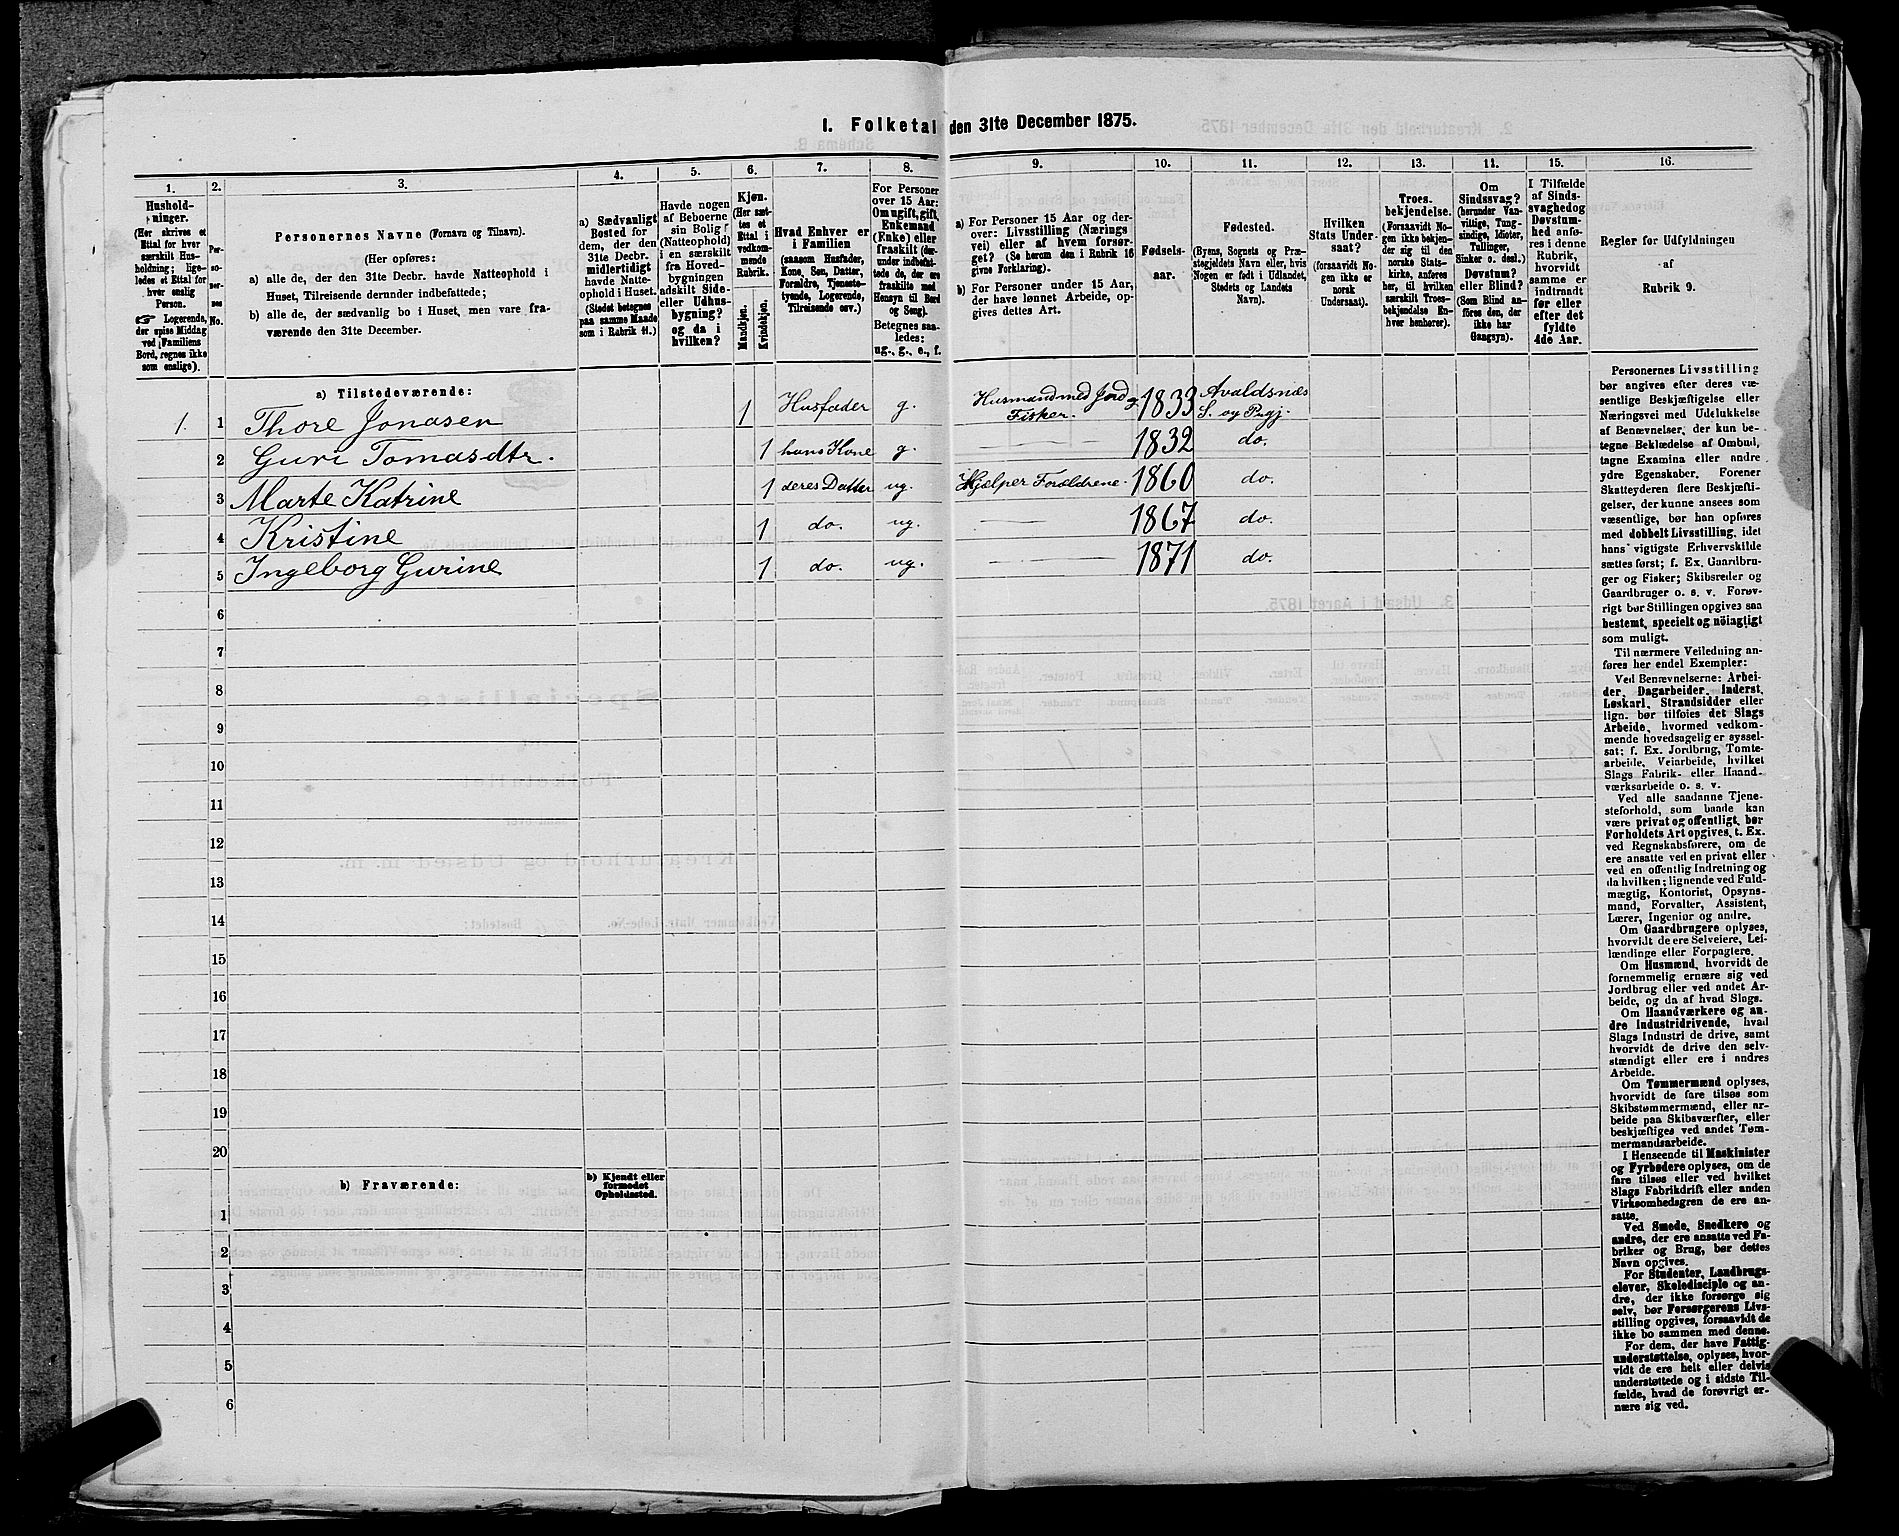 1. Folketal den 31te December 1875.
1. 2. 3. 4. 5. 6. 7. 8. 9. 10. 11. 12. 13. 14. 15. 16.
Hushold-
ninger.
(Her skrives et
Ettal for hver
særskilt Hus-
holdning; lige-
ledes et Ettal for
hver enslig
Person.
☞ Logerende,
der spise Middag
ved Familiens
Bord, regnes ikke
som enslige).
Per-
so-
ner-
nes
No.
Personernes Navne (Fornavn og Tilnavn).
(Her opføres:
a) alle de, der den 31te Decbr. havde Natteophold i
Huset, Tilreisende derunder indbefattede;
b) alle de, der sædvanlig bo i Huset, men vare fra-
værende den 31te December.
a) Sædvanligt
Bosted for
dem, der den
31te Decbr.
midlertidigt
havde Natte-
ophold i Huset.
(Stedet betegnes
paa samme Maade
som i Rubrik 11.)
Havde nogen
af Beboerne
sin Bolig
(Natteophold)
i en særskilt
fra Hoved-
bygningen
adskilt Side-
eller Udhus-
bygning?
og da i
hvilken?
Kjøn.
(Her sæt-
tes et
Ettal i
vedkom-
mende
Rubrik.
Mandkjøn.
Kvindekjøn.
Hvad Enhver er
i Familien
(saasom Husfader,
Kone, Søn, Datter,
Forældre, Tjeneste-
tyende, Logerende,
Tilreisende osv.)
For Personer
over 15 Aar:
Om ugift, gift,
Enkemand
(Enke) eller
fraskilt (der-
under indbefat-
tede de, der ere
fraskilte med
Hensyn til Bord
og Seng).
Betegnes saa-
ledes:
ug., g., e., f.
a) For Personer 15 Aar og der-
over: Livsstilling (Nærings-
vei) eller af hvem forsør-
get? (Se herom den i Rubrik 16
givne Forklaring).
b) For Personer under 15 Aar,
der have lønnet Arbeide, op-
gives dettes Art.
Fødsels-
aar.
Fødested.
(Byens, Sognets og Præ-
stegjeldets Navn eller, hvis
Nogen er født i Udlandet,
Stedets og Landets
Navn).
Hvilken
Stats Under-
saat?
(forsaavidt No-
gen ikke er
norsk
Undersaat).
Troes-
bekjendelse.
(Forsaavidt No-
gen ikke bekjen-
der sig til den
norske Stats-
kirke, anføres
her, til hvilken
særskilt Troes-
bekjendelse En-
hver henhører).
Om
Sindssvag?
(herunder Van-
vittige, Tung-
sindige, Idioter,
Tullinger,
Sinker o. desl.)
Døvstum?
eller Blind?
(Som Blind an-
føres den, der
ikke har
Gangsyn).
I Tilfælde
af Sinds-
svaghed og
Døvstum-
hed anfø-
res i denne
Rubrik,
hvorvidt
samme er
indtraadt
før eller
efter det
fyldte
4de Aar.
Regler for Udfyldningen
af
Rubrik 9.
a) Tilstedeværende:
1. 1 Thore Jonasen 1 Husfader g. Husmand med Jord og Fisker. 1833 Avaldsnæs S. og Prgj.
2 Guri Tomasdtr. 1 hans Kone g. 1832 do.
3 Marte Katrine 1 deres Datter ug. Hjælper Forældrene. 1860 do.
4 Kristine 1 do. ug. 1867 do.
5 Ingeborg Gurine 1 do. ug. 1871 do.
6
7
8
9
10
11
12
13
14
15
16
17
18
19
20
b) Fraværende:
b) Kjendt eller
formodet
Opholdssted.
1
2
3
4
5
6
Personernes Livsstilling
bør angives efter deres væ-
sentlige Beskjæftigelse eller
Næringsvei med Udelukkelse
af Benævnelser, der kun be-
tegne Beklædelse af Ombud,
tagne Examina eller andre
ydre Egenskaber. Forener
Skatteyderen flere Beskjæfti-
gelser, der kunne ansees som
væsentlige, bør han opføres
med dobbelt Livsstilling, idet
hans vigtigste Erhvervskilde
sættes først; f. Ex. Gaardbru-
ger og Fisker; Skibsreder og
Gaardbruger o. s. v. Forøv-
rigt bør Stillingen opgives saa
bestemt, specielt og nöiagtigt
som muligt.
Til nærmere Veiledning an-
føres her endel Exempler:
Ved Benævnelserne: Arbei-
der, Dagarbeider, Inderst,
Løskarl, Strandsidder eller
lign. bør tilføies det Slags
Arbeide, hvormed vedkom-
mende hovedsagelig er syssel-
sat; f. Ex. Jordbrug, Tomte-
arbeide, Veiarbeide, hvilket
Slags Fabrik- eller Haand-
værksarbeide o. s. v.
Ved alle saadanne Tjene-
steforhold, som baade kan
være privat og offentligt, bør
Forholdets Art opgives, t. Ex.
ved Regnskabsførere, om de
ere ansatte ved en privat eller
ved en offentlig Indretning og
da hvilken; lignende ved Fuld-
mægtig, Kontorist, Opsyns-
mand, Forvalter, Assistent,
Lærer, Ingeniør og andre.
Om Gaardbrugere oplyses,
hvorvidt de ere Selveiere, Lei-
lændinge eller Forpagtere.
Om Husmænd, hvorvidt de
fornemmelig ernære sig ved
Jordbrug eller ved andet Ar-
beide, og da af hvad Slags.
Om Haandværkere og an-
dre Industridrivende, hvad
Slags Industri de drive, samt
hvorvidt de drive den selv-
stændigt eller ere i andres
Arbeide.
Om Tømmermænd oplyses,
hvorvidt de fare tilsøs som
Skibstømmermænd, eller ar-
beide paa Skibsværfter, eller
beskjæftiges ved andet Tøm-
mermandsarbeide.
I Henseende til Maskinister
og Fyrbødere oplyses, om de
fare tilsøs eller ved hvilket
Slags Fabrikdrift eller anden
Virksomhedsgren de ere an-
satte.
Ved Smede, Snedkere og
andre, der ere ansatte ved Fa-
briker og Brug, bør dettes
Navn opgives.
For Studenter, Landbrugs-
elever, Skoledisciple og an-
dre, der ikke forsørge sig
selv, bør Forsørgerens Livs-
stilling opgives, forsaavidt de
ikke bo sammen med denne.
For dem, der have Fattig-
understøttelse, oplyses, hvor-
vidt de ere helt eller delvis
understøttede og i sidste Til-
fælde, hvad de forøvrigt er-
nære sig ved.